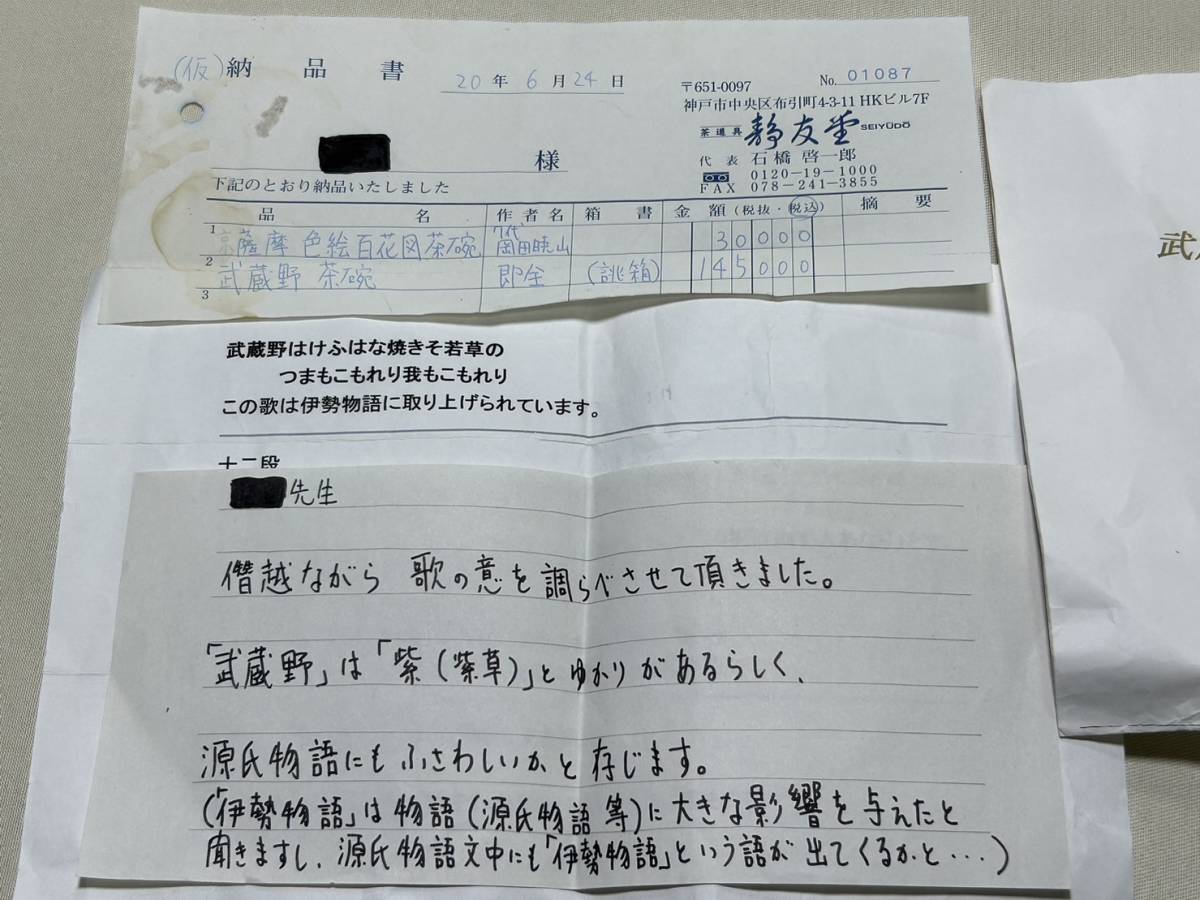 (仮)納品書
20年6月24日
No. 01087
〒651-0097
神戸市中央区布引町4-3-11 HKビル7F
茶道具 静友堂 SEIYŪDŌ
代表 石橋啓一郎
0120-19-1000
FAX 078-241-3855
様
下記のとおり納品いたしました
品名 作者名 箱書 金額(税抜・税込) 摘要
1 京薩摩 色絵百花図茶碗 7代岡田暁山 30000
2 武蔵野 茶碗 即全 (誂箱) 145000
3
武蔵野はけふはな焼きそ若草の
つまもこもれり我もこもれり
この歌は伊勢物語に取り上げられています。
十二段
先生
僭越ながら 歌の意を調らべさせて頂きました。
「武蔵野」は「紫(紫草)」とゆかりがあるらしく、
源氏物語にもふさわしいかと存じます。
(「伊勢物語」は物語(源氏物語等)に大きな影響を与えたと
聞きますし、源氏物語文中にも「伊勢物語」という語が出てくるかと・・・)
武